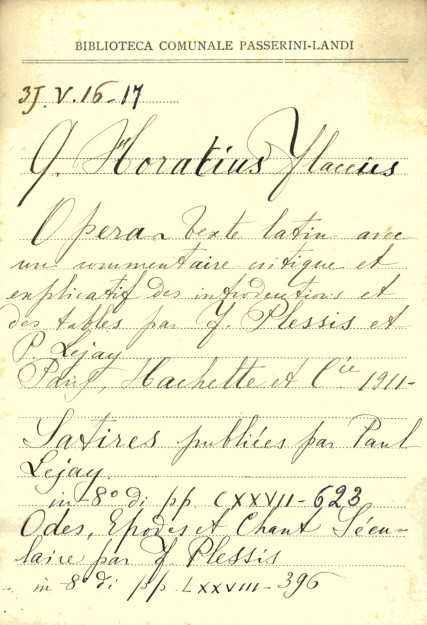 BIBLIOTECA COMUNALE PASSERINI-LANDI
3J.V.16-17
Q. Horatius Flaccus
Opera. texte latin avec
un commentaire critique et
explicatif des introductions et
des tables par F. Plessis et
P. Lejay
Paris, Hachette et Cie 1911-
Satires publiées par Paul
Lejay.
in-8° di pp. CXXVII-623
Odes, Epodes et Chant Sécu-
laire par F. Plessis
in-8° di pp. LXXVIII-396